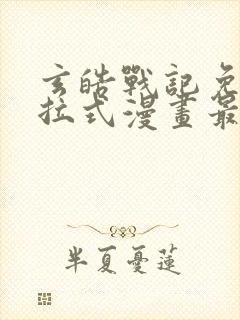 玄皓戰記免
拉式漫畫最
半夏憂蓮